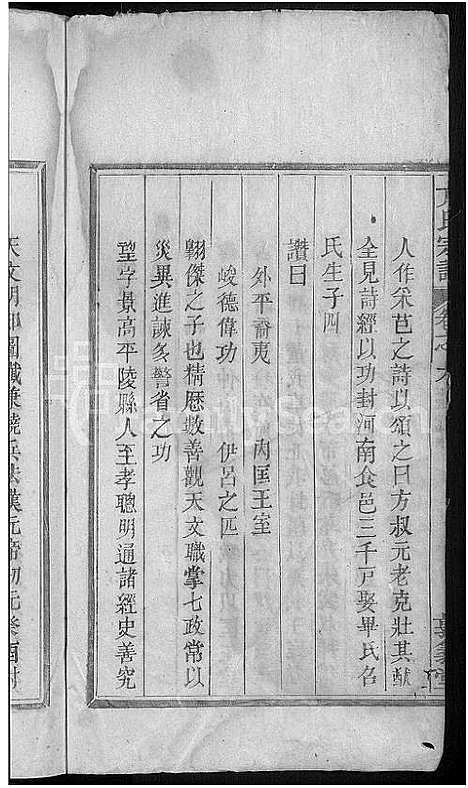 方氏宗譜 卷之
人作采芑之詩以頌之曰方叔元老克壯其猷
全見詩經以功封河南食邑三千戶娶畢氏名
氏生子四
讚曰
外平裔夷 內匡王室
峻德偉功 伊呂之匹
翱傑之子也精歷數善觀天文職掌七政常以
災異進諫多警省之功
望字景高平陵縣人至孝聰明通諸經史善究
天文明和圖讖兼曉兵法漢元帝初元癸酉封